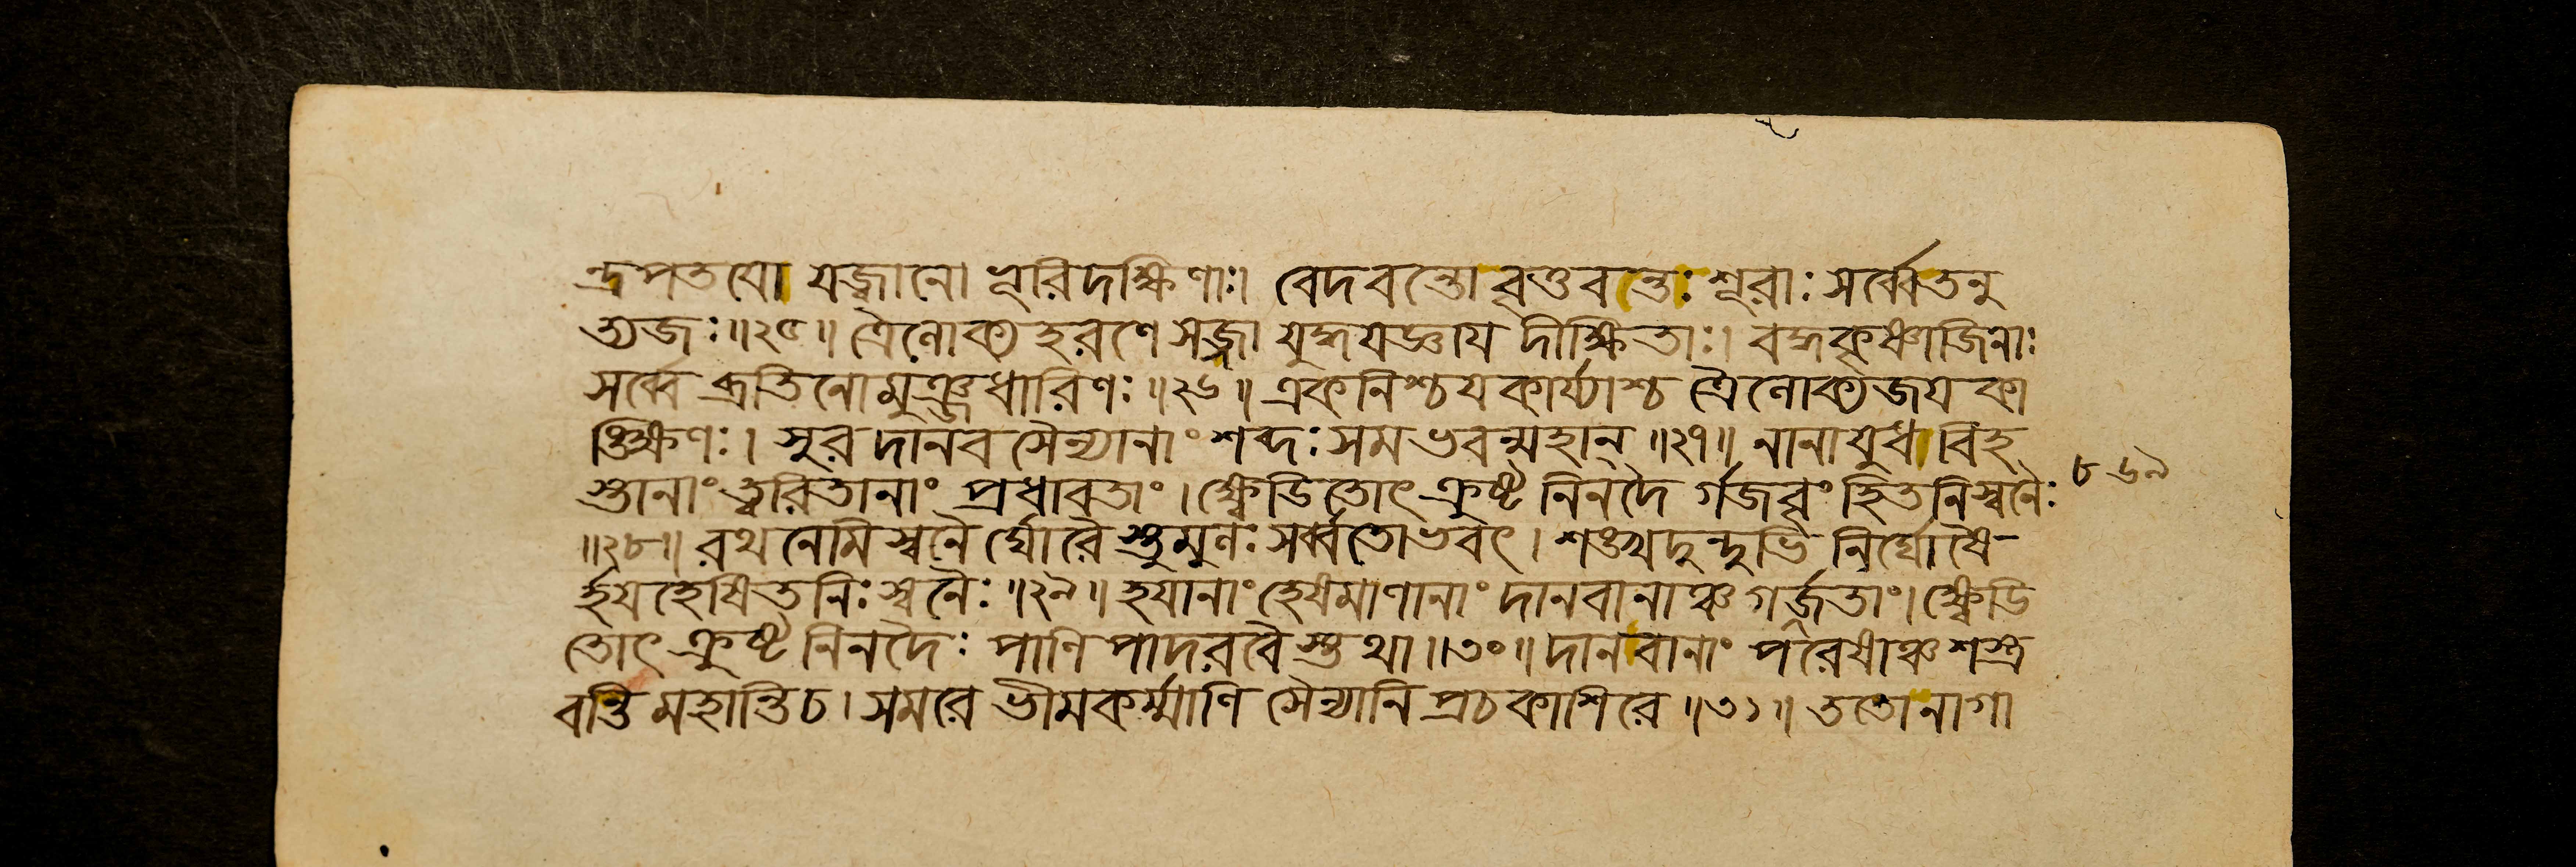 ন্দ্রপতযো যজ্বানো ভূরিদক্ষিণাঃ। বেদবন্তো বৃত্তবন্তঃ শূরাঃ সর্ব্বেতনু
ত্যজঃ॥২৫॥ ত্রৈলোক্যহরণে সজ্জা যুদ্ধযজ্ঞায দীক্ষিতাঃ। বদ্ধকৃষ্ণাজিনাঃ
সর্ব্বে ব্রতিনোমুঞ্জধারিণঃ॥২৬॥ একনিশ্চযকার্য্যাশ্চ ত্রৈলোক্যজযকা
ঙ্ক্ষিণঃ। সুরদানবসৈন্যানাং শব্দঃ সমভবন্মহান্॥২৭॥ নানাযুধাবিহ
স্তানাং ত্বরিতানাং প্রধাবতাং। ক্ষ্বেডিতোৎক্রুষ্টনিনদৈর্গজবৃংহিতনিস্বনৈঃ
৮৬৯
॥২৮॥ রথনেমিস্বনৈর্ঘোরৈস্তুমুলঃ সর্ব্বতোভবৎ। শঙ্খদুন্দুভিনির্ঘোষৈ-
র্হযহেষিতনিঃস্বনৈঃ॥২৯॥ হযানাং হেষমাণানাং দানবানাঞ্চ গর্জ্জতাং। ক্ষ্বেডি
তোৎক্রুষ্টনিনদৈঃ পাণিপাদরবৈস্তথা॥৩০॥ দানবানাং পরেষাঞ্চ শস্ত্র
বন্তি মহান্তি চ। সমরে ভীমকর্ম্মাণি সৈন্যানি প্রচকাশিরে॥৩১॥ ততোনাগা